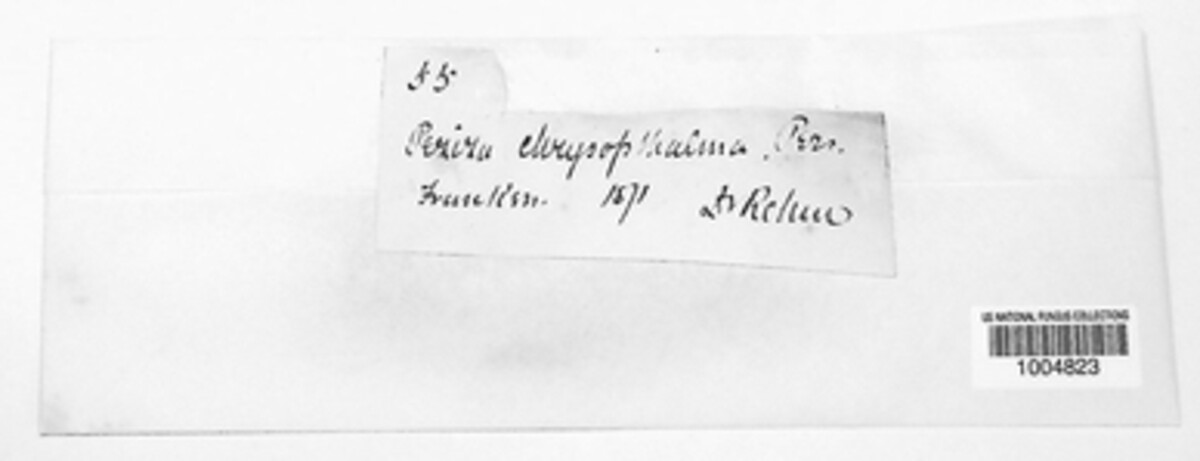 55
Peziza chrysophthalma. Pers.
Franken. 1871 Dr Rehm
US NATIONAL FUNGUS COLLECTIONS
1004823